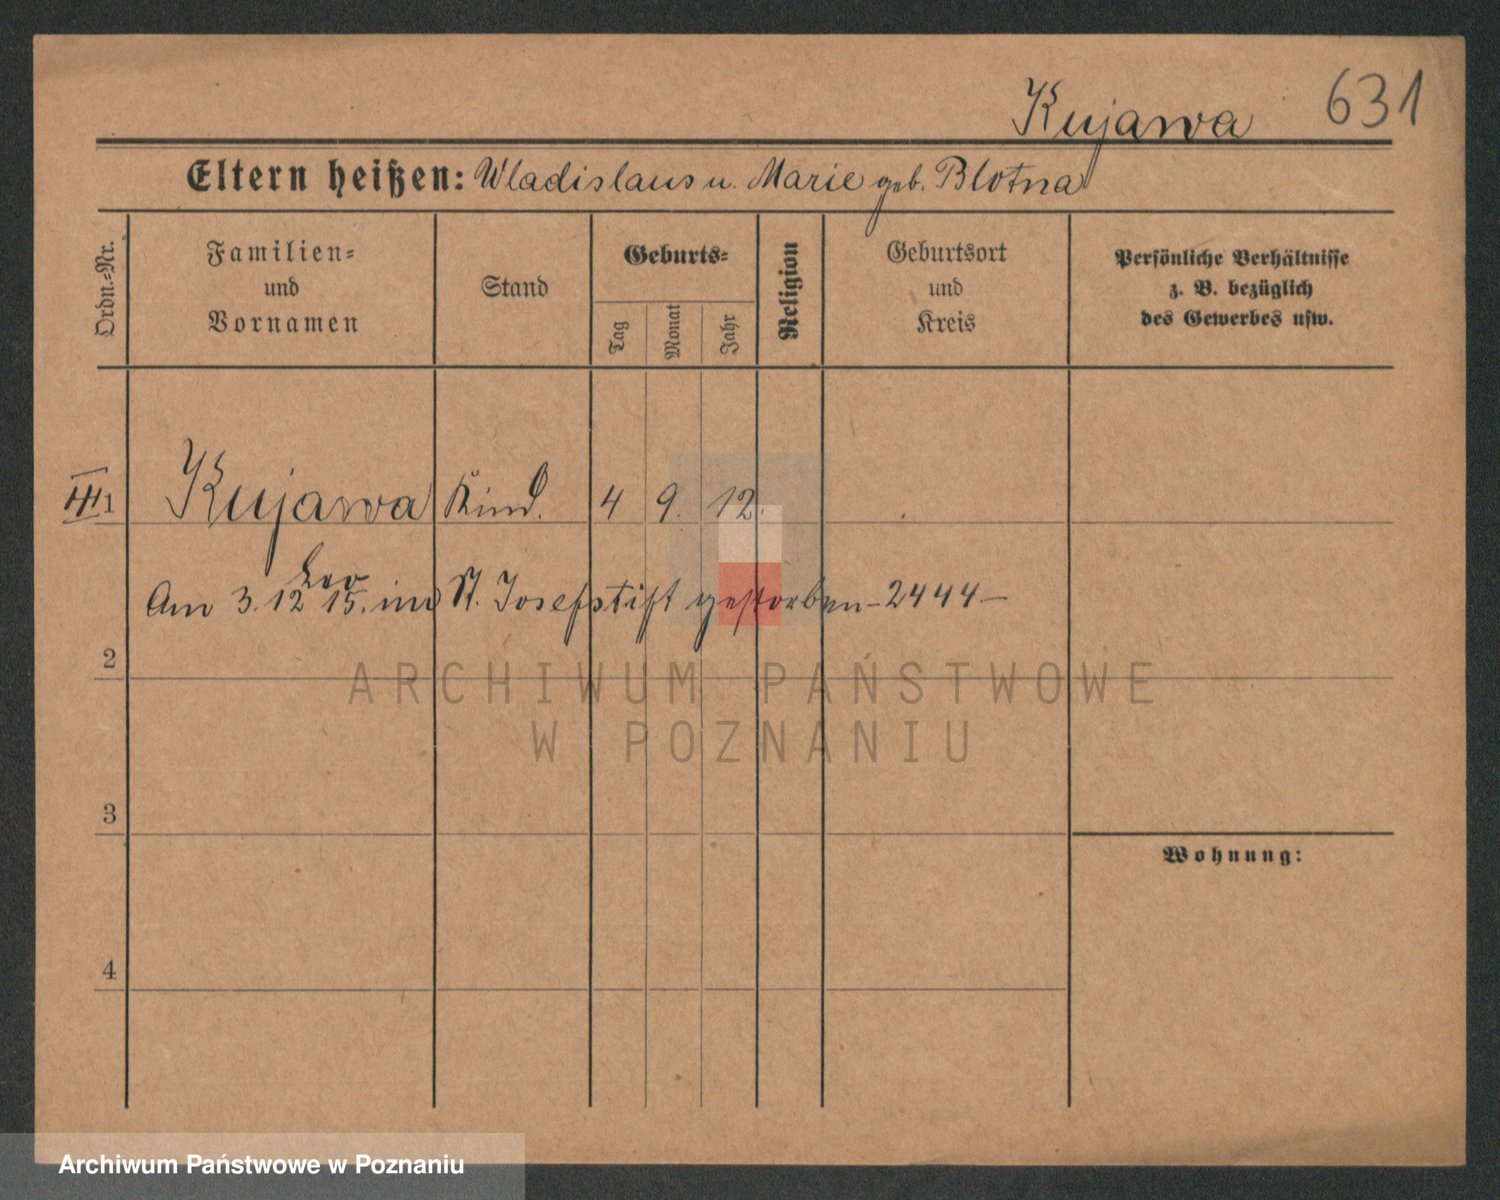 Kujawa 631
Eltern heißen: Wladislaus u. Marie geb. Blotna
Ordn.=Nr.
Familien=
und
Vornamen
Stand
Geburts=
Tag
Monat
Jahr
Religion
Geburtsort
und
Kreis
Persönliche Verhältnisse
z. B. bezüglich
des Gewerbes usw.
III 1 Kujawa Kind. 4 9. 12.
Leo
Am 3. 12 15. im St. Josefstift gestorben - 2444 -
2
ARCHIWUM PAŃSTWOWE
W POZNANIU
3
Wohnung:
4
Archiwum Państwowe w Poznaniu